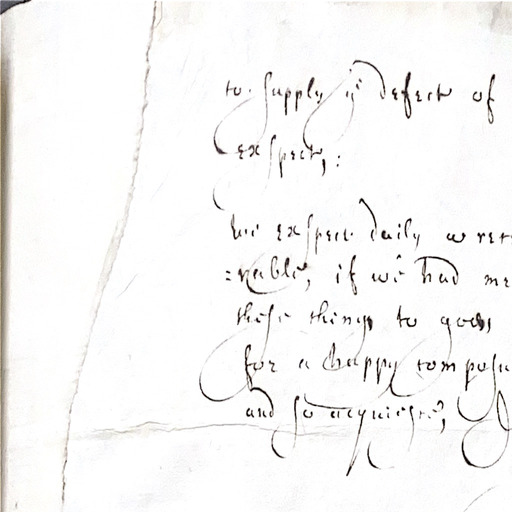 to supply yͤ defect of
expect,:
We expect daily a ret
:nable, if wê had me
these things to goe
for a happy composu
and so acquiesce,